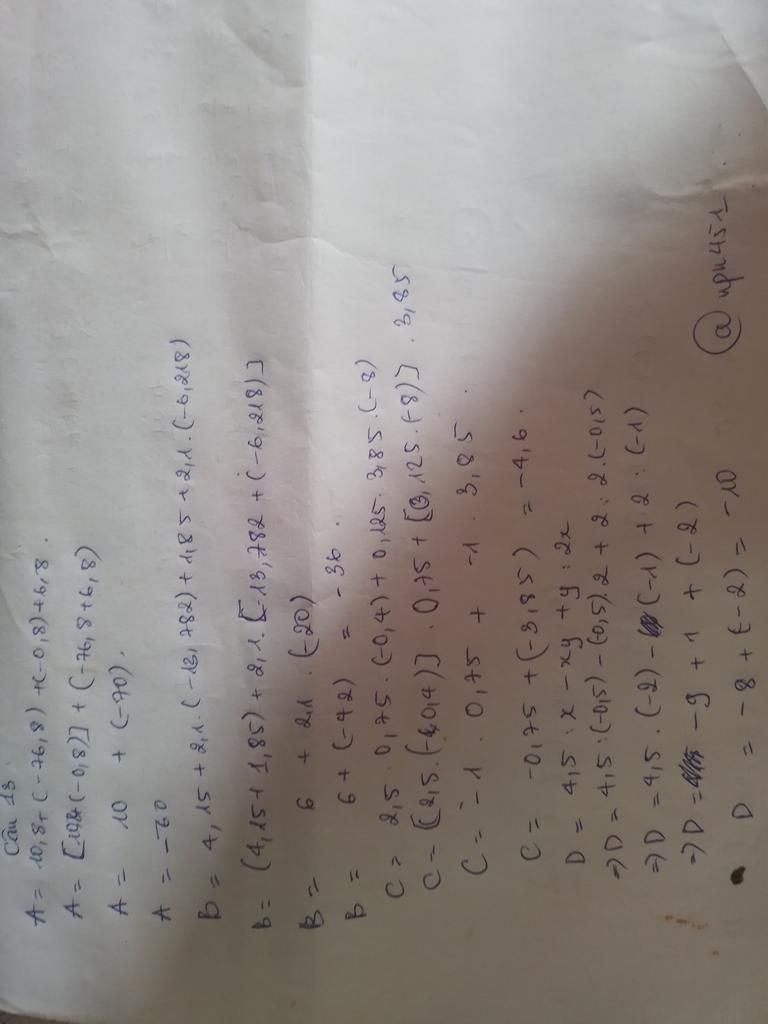 Câu 13
A = 10,8 + (-76,8) + (-0,8) + 6,8.
A = [10,8 + (-0,8)] + (-76,8 + 6,8)
A = 10 + (-70).
A = -60
B = 4,15 + 2,1.(-13,782) + 1,85 + 2,1.(-6,218)
B = (4,15 + 1,85) + 2,1.[-13,782 + (-6,218)]
B = 6 + 2,1.(-20)
B = 6 + (-42) = -36.
C = 2,5.0,75.(-0,4) + 0,125.3,85.(-8)
C = [2,5.(-0,4)].0,75 + [0,125.(-8)].3,85
C = -1.0,75 + -1.3,85.
C = -0,75 + (-3,85) = -4,6.
D = 4,5 : x - xy + y : 2x
=> D = 4,5 : (-0,5) - (-0,5).2 + 2 : 2.(-0,5)
=> D = 4,5.(-2) - (-1) + 2 : (-1)
=> D = -9 + 1 + (-2)
D = -8 + (-2) = -10